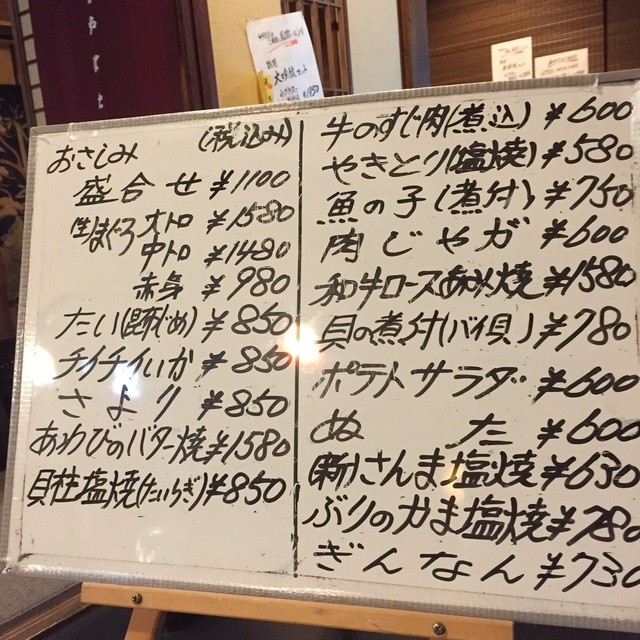 大吟醸セット
おさしみ (税込み)
盛合せ ¥1100
(生)まぐろ 大トロ ¥1580
中トロ ¥1480
赤身 ¥980
たい(昆布じめ) ¥850
チイチイいか ¥850
さより ¥850
あわびのバター焼 ¥1580
貝柱塩焼(たいらぎ) ¥850
牛のすじ肉(煮込) ¥600
やきとり(塩焼) ¥580
魚の子(煮付) ¥750
肉じゃが ¥600
和牛ロースあみ焼 ¥1580
貝の煮付(バイ貝) ¥780
ポテトサラダ ¥600
ぬた ¥600
(新)さんま塩焼 ¥630
ぶりのかま塩焼 ¥780
ぎんなん ¥730